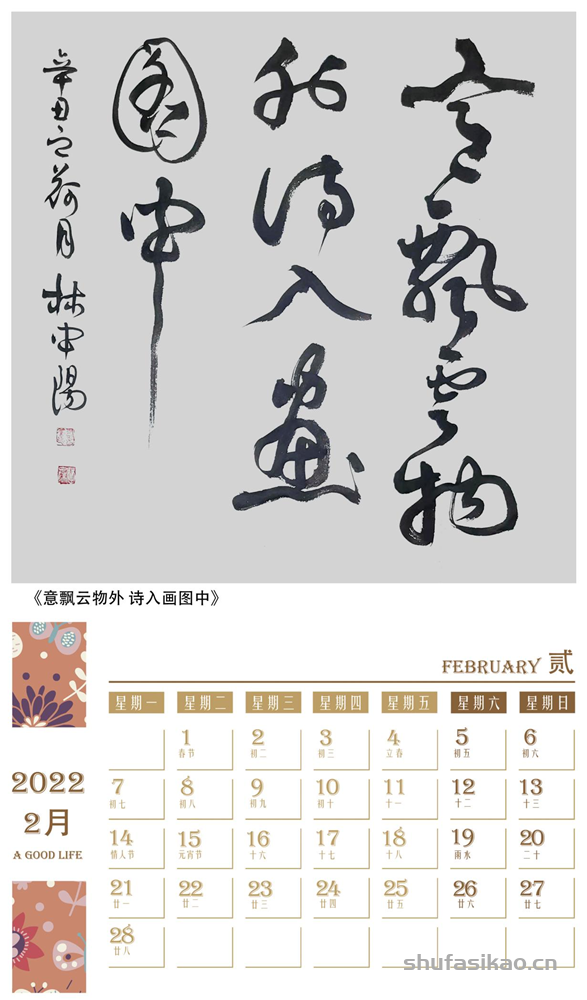 意飘云物
外诗入画
图中
辛丑之荷月 林中阳
《意飘云物外 诗入画图中》
FEBRUARY 贰
星期一 星期二 星期三 星期四 星期五 星期六 星期日
1 2 3 4 5 6
春节 初二 初三 立春 初五 初六
2022
2月
A GOOD LIFE
7 8 9 10 11 12 13
初七 初八 初九 初十 十一 十二 十三
14 15 16 17 18 19 20
情人节 元宵节 十六 十七 十八 雨水 二十
21 22 23 24 25 26 27
廿一 廿二 廿三 廿四 廿五 廿六 廿七
28
廿八
shufasikao.cn